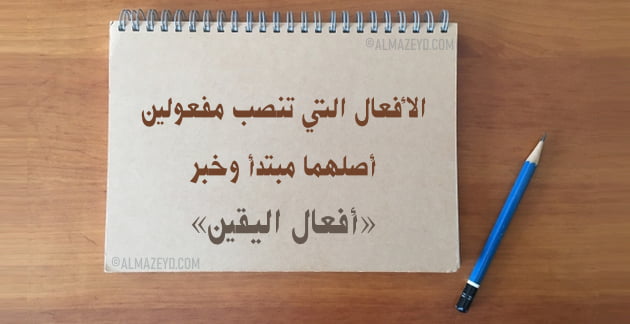 ©ALMAZEYD.COM
الأفعال التي تنصب مفعولين
أصلهما مبتدأ وخبر
«أفعال اليقين»
©ALMAZEYD.COM